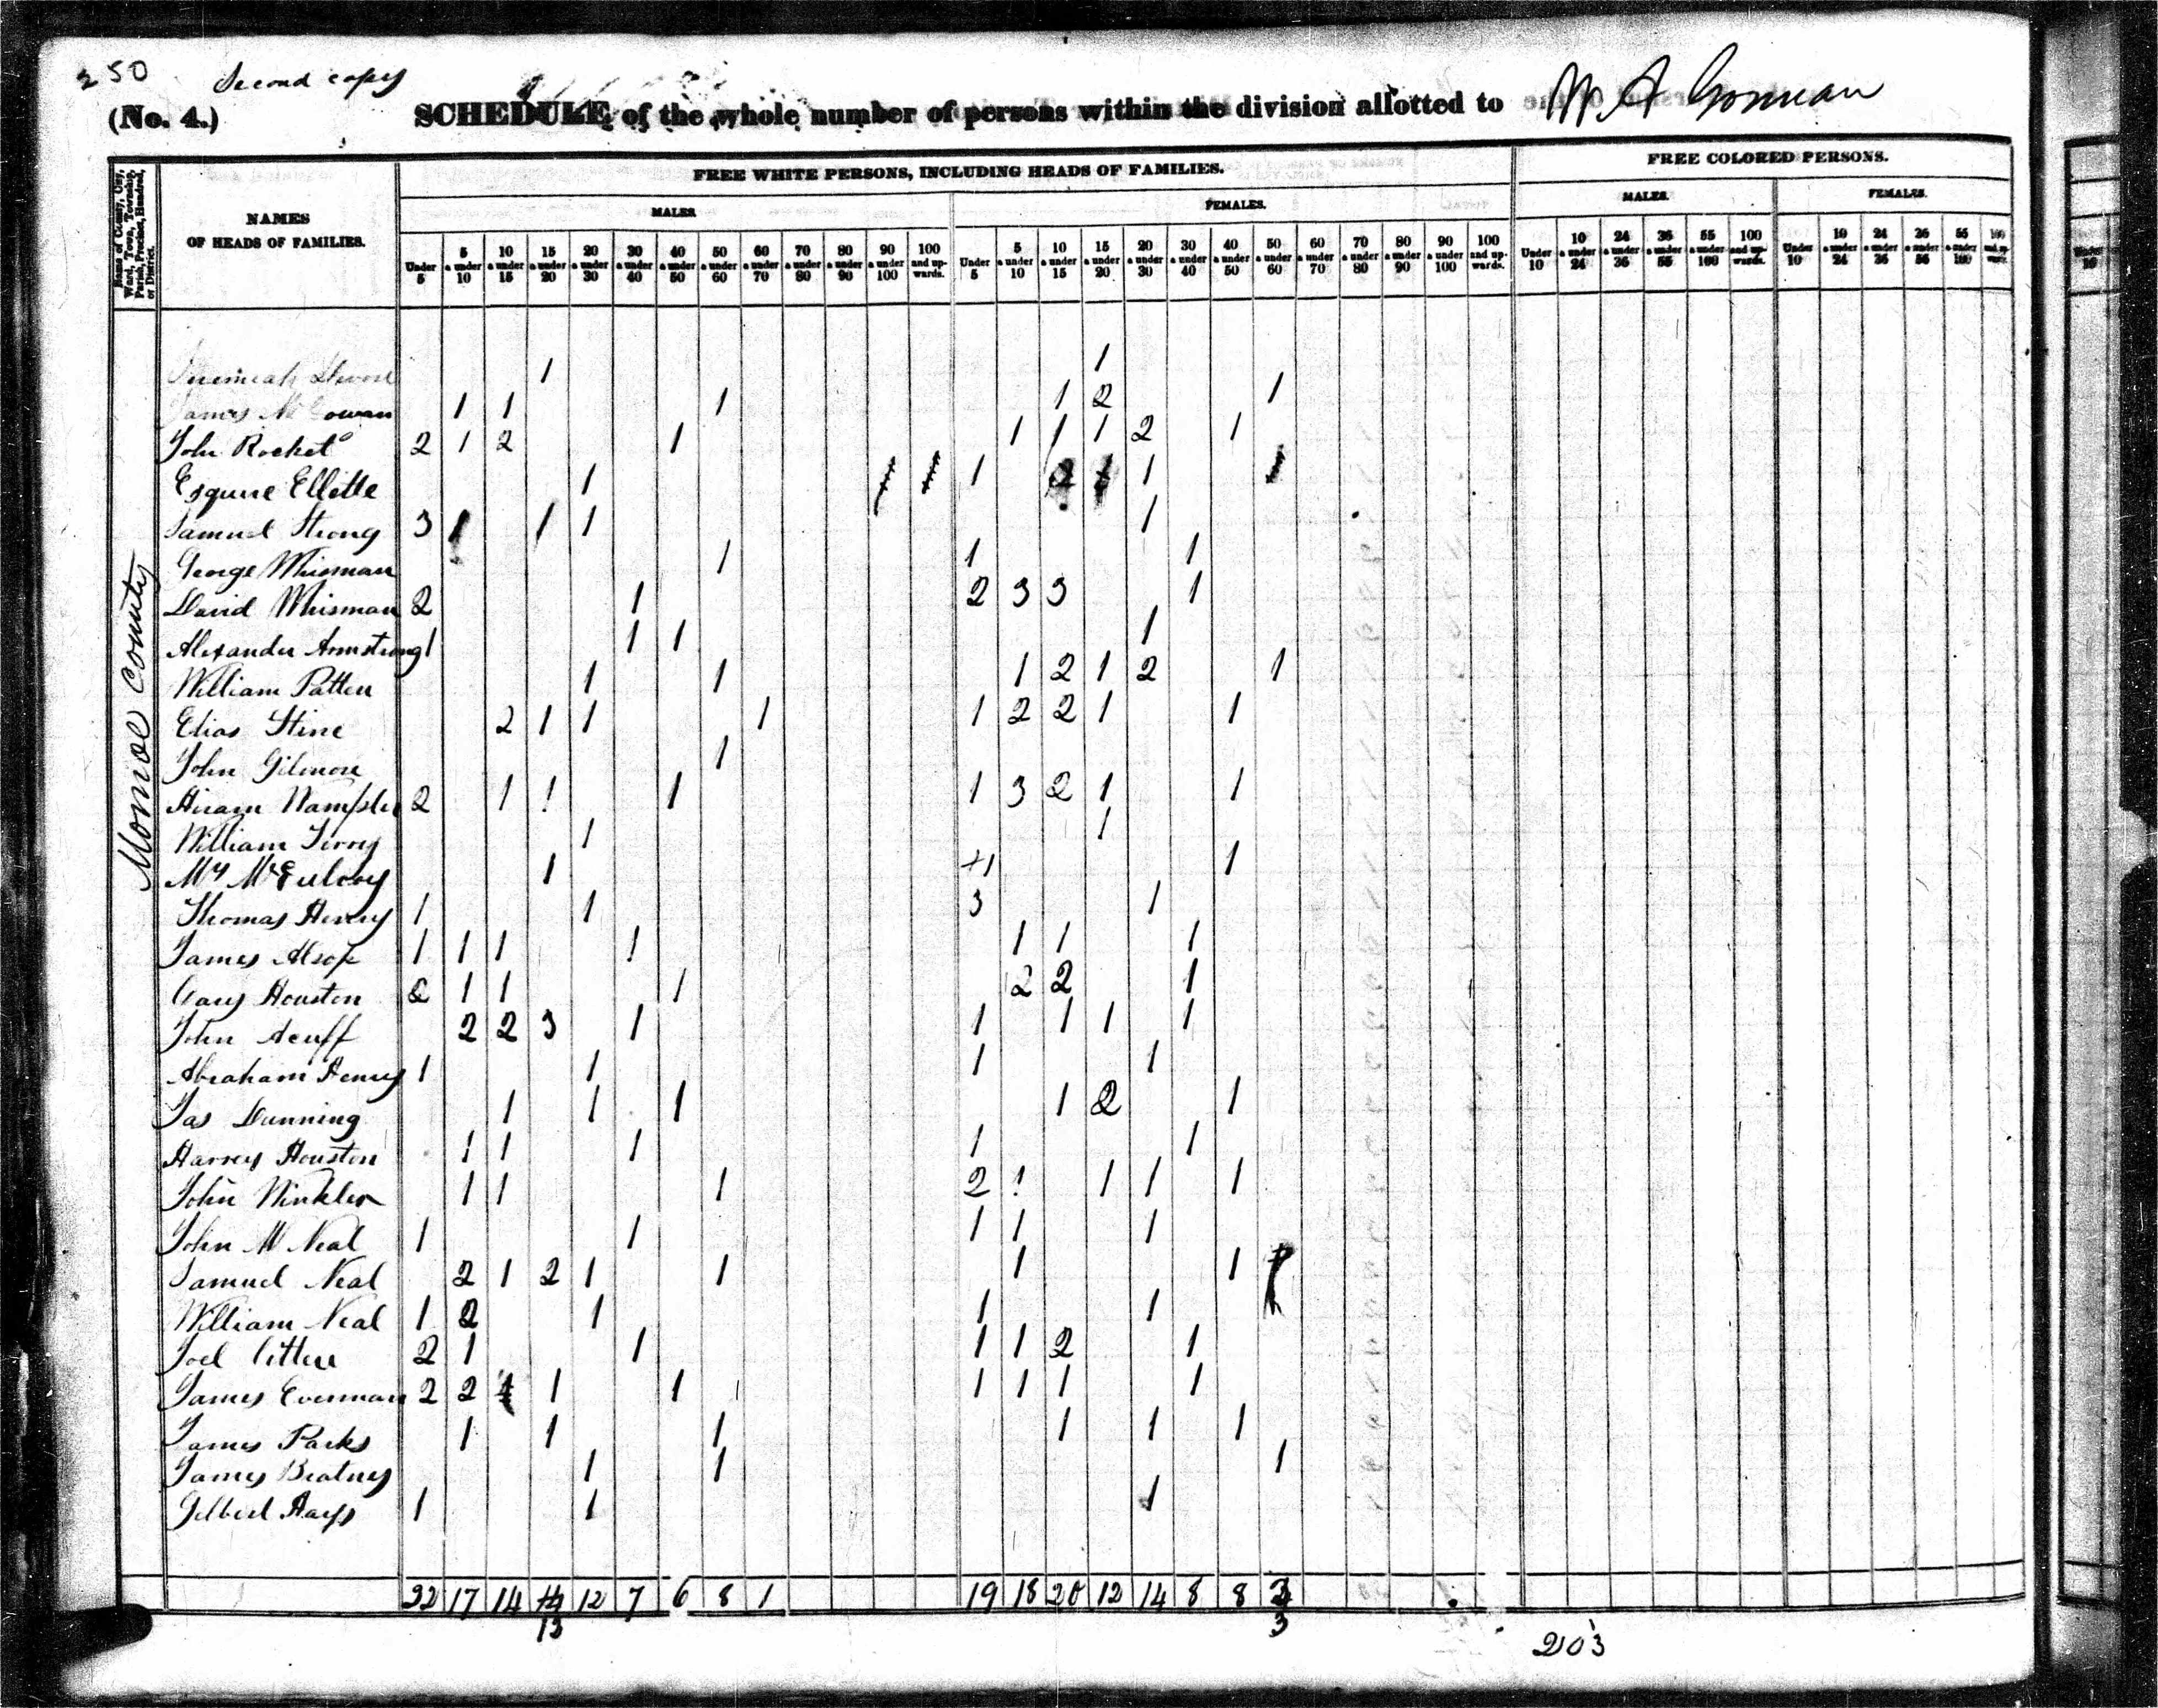 250 Second copy
(No. 4.) SCHEDULE of the whole number of persons within the division allotted to W A Gorman
Name of County, City, Ward, Town, Township, Parish, Precinct, Hundred, or District.
NAMES OF HEADS OF FAMILIES.
FREE WHITE PERSONS, INCLUDING HEADS OF FAMILIES.
FREE COLORED PERSONS.
MALES. FEMALES. MALES. FEMALES.
Under 5 5 & under 10 10 & under 15 15 & under 20 20 & under 30 30 & under 40 40 & under 50 50 & under 60 60 & under 70 70 & under 80 80 & under 90 90 & under 100 100 and upwards. Under 5 5 & under 10 10 & under 15 15 & under 20 20 & under 30 30 & under 40 40 & under 50 50 & under 60 60 & under 70 70 & under 80 80 & under 90 90 & under 100 100 and upwards. Under 10 10 & under 24 24 & under 36 36 & under 55 55 & under 100 100 and upwards. Under 10 10 & under 24 24 & under 36 36 & under 55 55 & under 100 100 and upwards.
Monroe County
Jeremiah 1 1
James McGowan 1 1 1 1 2 1
John Rocket 2 1 2 1 1 1 1 2 1
Esquire Ellette 1 1 1
Samuel Strong 3 1 1 1 1
George Whisman 1 1 1
David Whisman 2 1 2 3 3 1
Alexander Armstrong 1 1 1 1
William Patten 1 1 1 2 1 2 1
Elias Stine 2 1 1 1 1 2 2 1 1
John Gilmore 1
Hiram Wampler 2 1 1 1 1 3 2 1 1
William Terry 1 1
1 1 1
Thomas Henry 1 1 3 1
James Alsop 1 1 1 1 1 1 1
Gary Houston 2 1 1 1 2 2 1
John Acuff 2 2 3 1 1 1 1 1
Abraham Henry 1 1 1 1
Jas Dunning 1 1 1 1 2 1
Harvey Houston 1 1 1 1 1
John Winkler 1 1 1 2 1 1 1 1
John M Neal 1 1 1 1 1
Samuel Neal 2 1 2 1 1 1 1
William Neal 1 2 1 1 1
Joel 2 1 1 1 1 2 1
James Evenman 2 2 1 1 1 1 1 1 1
James Parks 1 1 1 1 1 1
James Beatney 1 1 1
Gilbert Hays 1 1 1
22 17 14 14 12 7 6 8 1 19 18 20 12 14 8 8
13 3
203